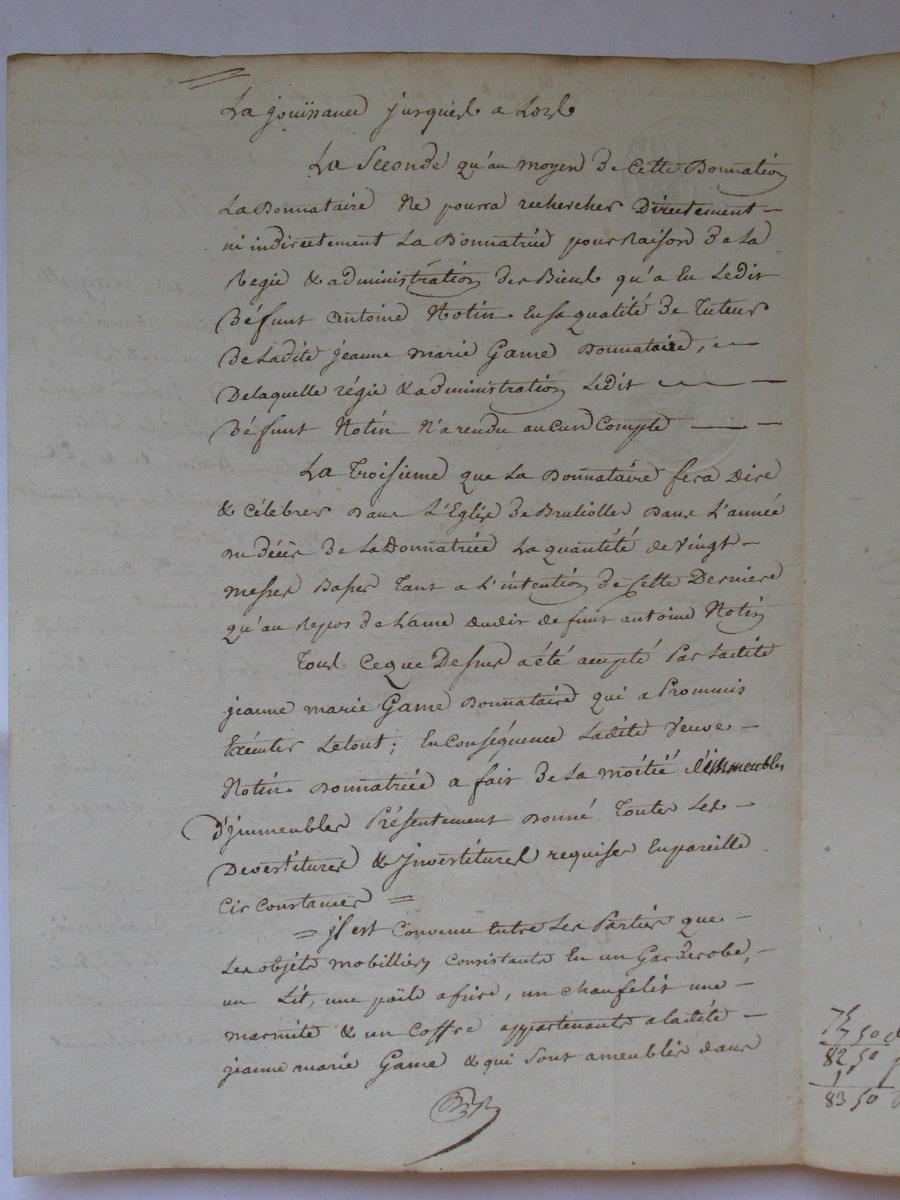 La jouissance jusques a Lors
La Seconde qu'au moyen de Cette Donnation
La Donnataire Ne pourra rechercher Directement
ni indirectement La Donnatrice pour Raison de La
Regie & administration des Biens qu'a Eu Ledit
Défunt Antoine Notin En sa qualité de Tuteur
de Ladite jeanne marie Game Donnataire,
De laquelle régie & administration Ledit
Défunt Notin N'a rendu aucun Compte
La Troisieme que La Donnataire fera Dire
& Célébrer Dans L'Eglise de Bruliolles Dans L'année
du décès de La Donnatrice La quantité de vingt
messes Basses Tant a L'intention de Cette Derniere
qu'au Repos de L'ame dudit defunt antoine Notin
Tout Ceque Dessus a été accepté Par Ladite
jeanne marie Game Donnataire qui a Prommis
Exécuter Letout ; En Conséquence Ladite Veuve
Notin Donnatrice a fait de La moitié d'immeubles
D'jmmeubles Présentement Donné Toutes Les
Devestitures & Jnvestitures requises En pareille
Circonstances =
= jl est Convenu Entre Les Parties que
Les objets mobilliers Consistants En un Garderobe,
un Lit, une poële a frire, un chaufelit une
marmite & un Coffre appartenants a ladite
jeanne marie Game & qui Sont ameublés dans
7 50
82 50
1
83 50